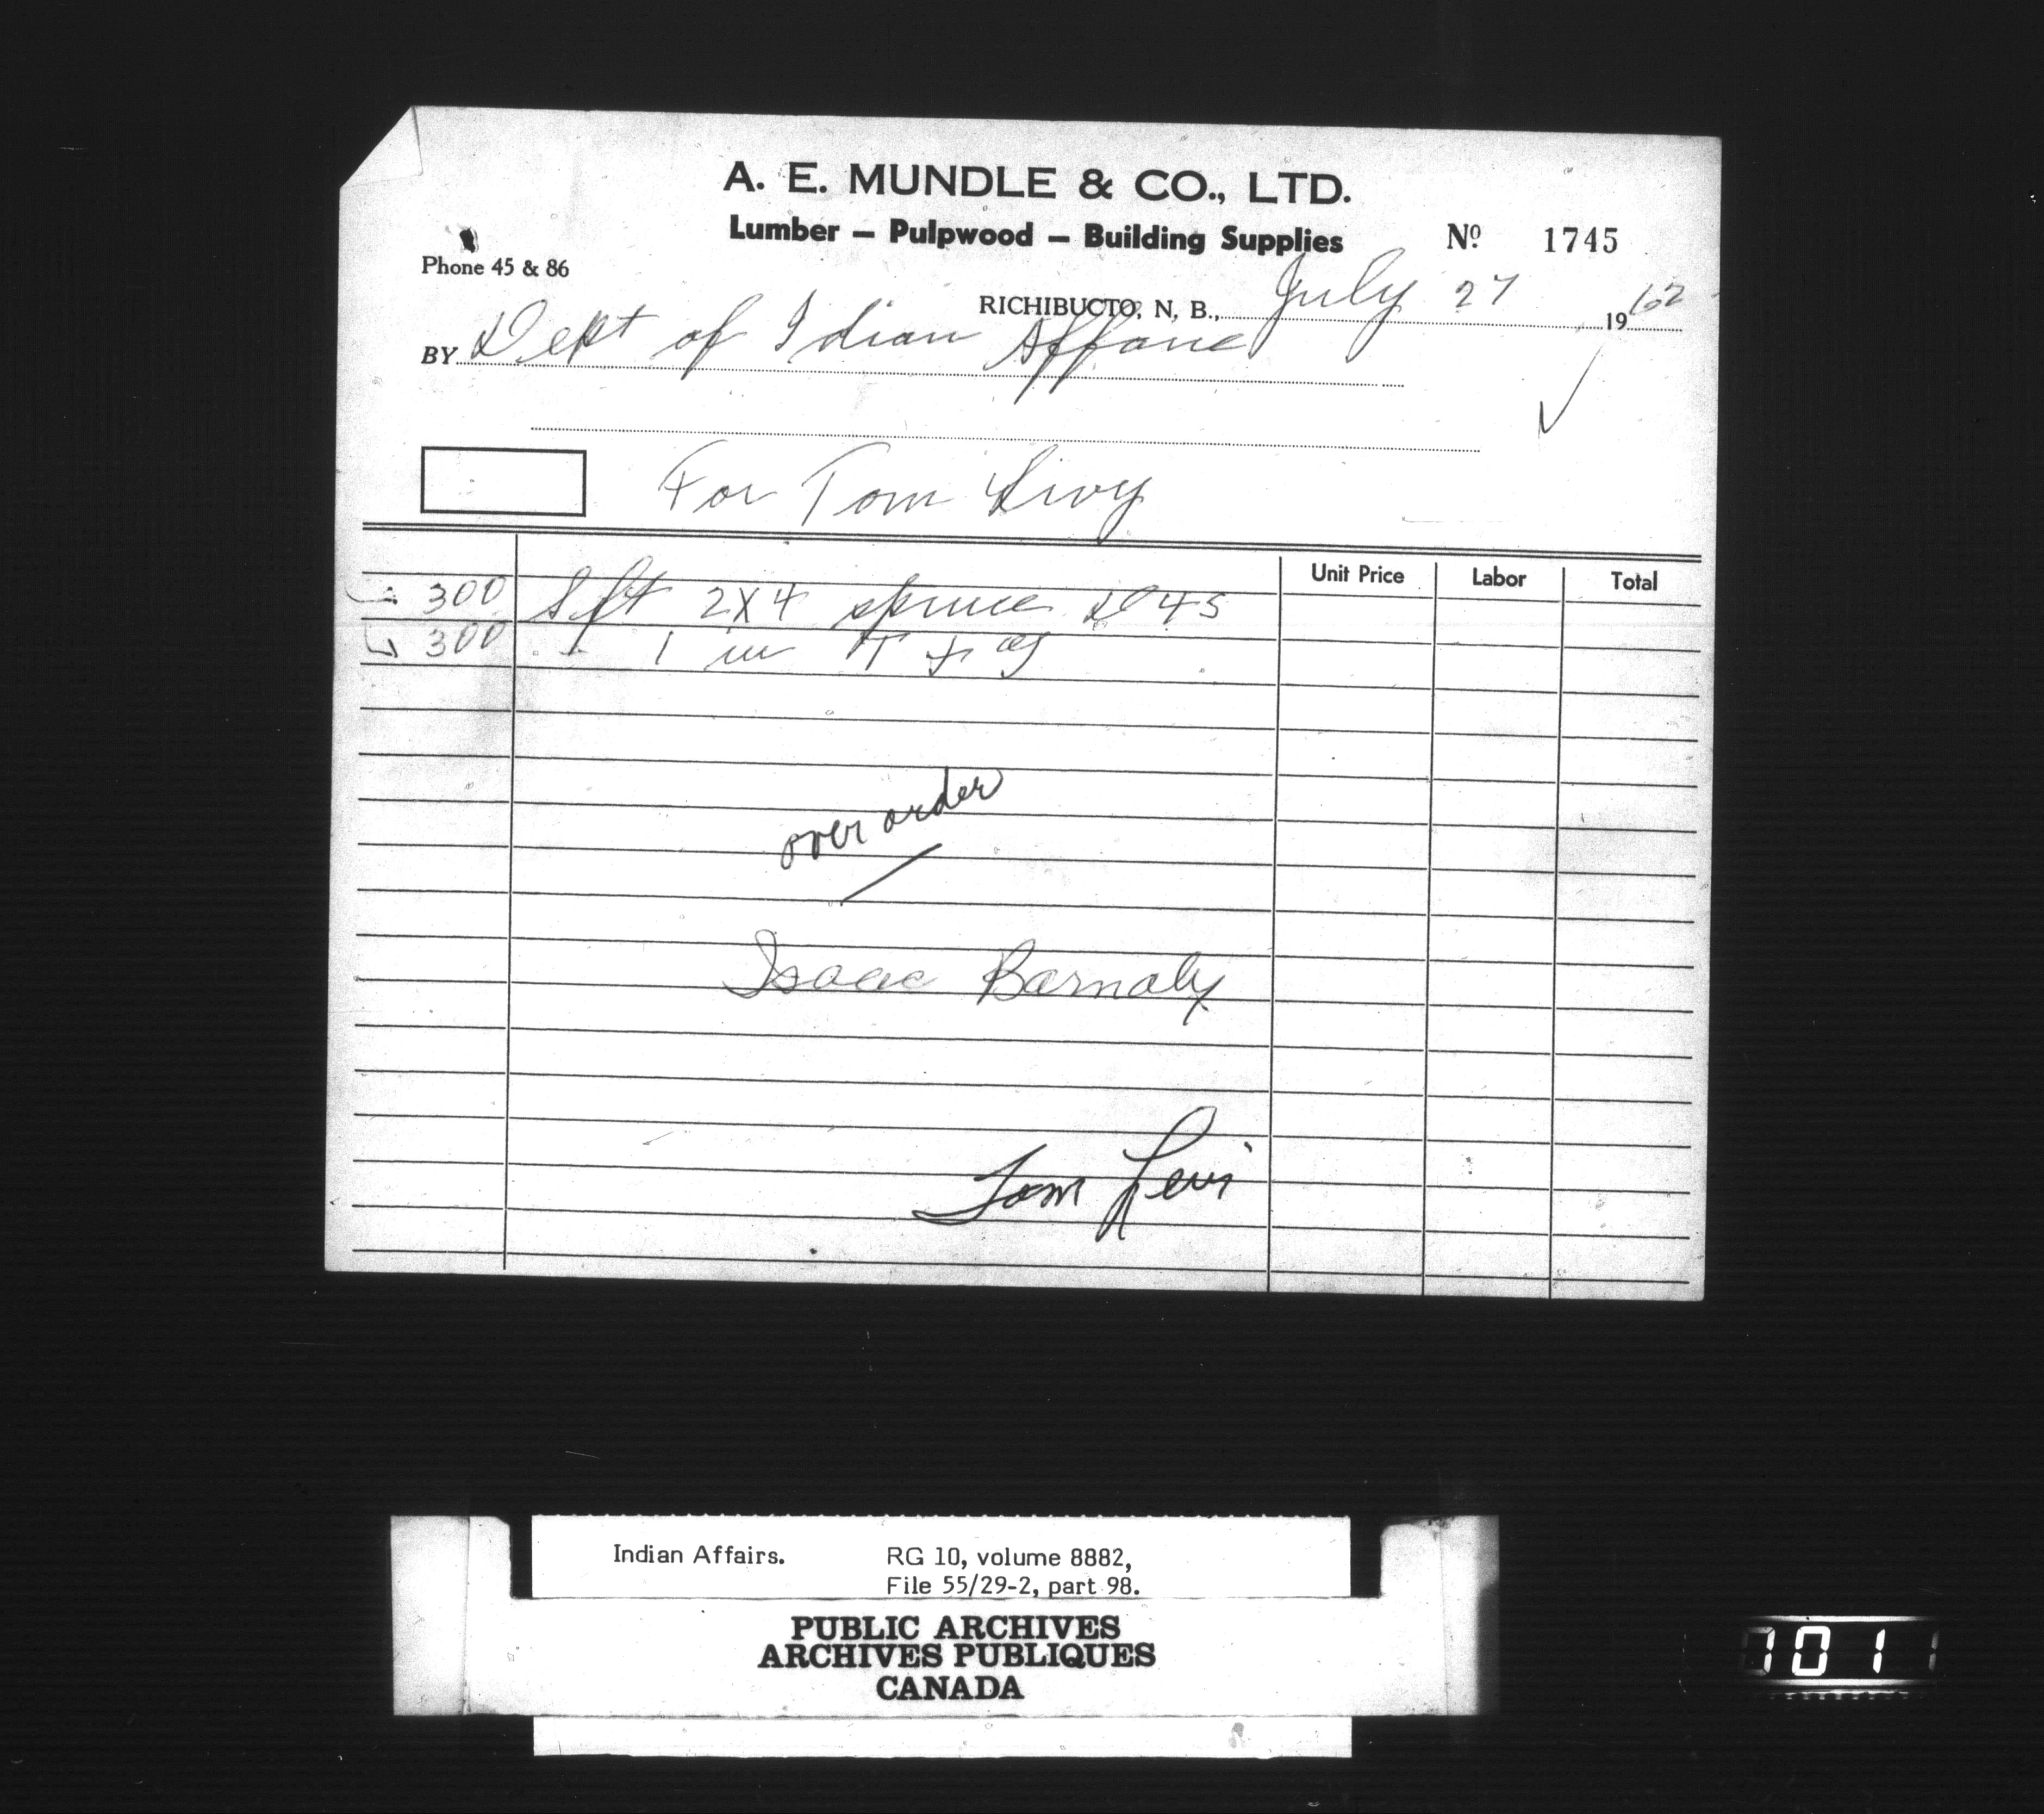 A. E. MUNDLE & CO., LTD.
Lumber — Pulpwood — Building Supplies
Nº 1745
Phone 45 & 86
RICHIBUCTO, N. B., July 27 1962
BY Dept of Idian Affane
For Tom Livy
Unit Price Labor Total
300 Sft 2X4 spruce D 4 S
300 " 1 in T + G
over order
Isaac Barnaby
Tom Levi
Indian Affairs. RG 10, volume 8882,
File 55/29-2, part 98.
PUBLIC ARCHIVES
ARCHIVES PUBLIQUES
CANADA